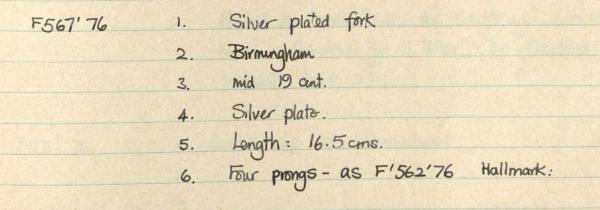 F567'76 1. Silver plated fork
2. Birmingham
3. mid 19 cent.
4. Silver plate.
5. Length: 16.5 cms.
6. Four prongs - as F'562'76 Hallmark: